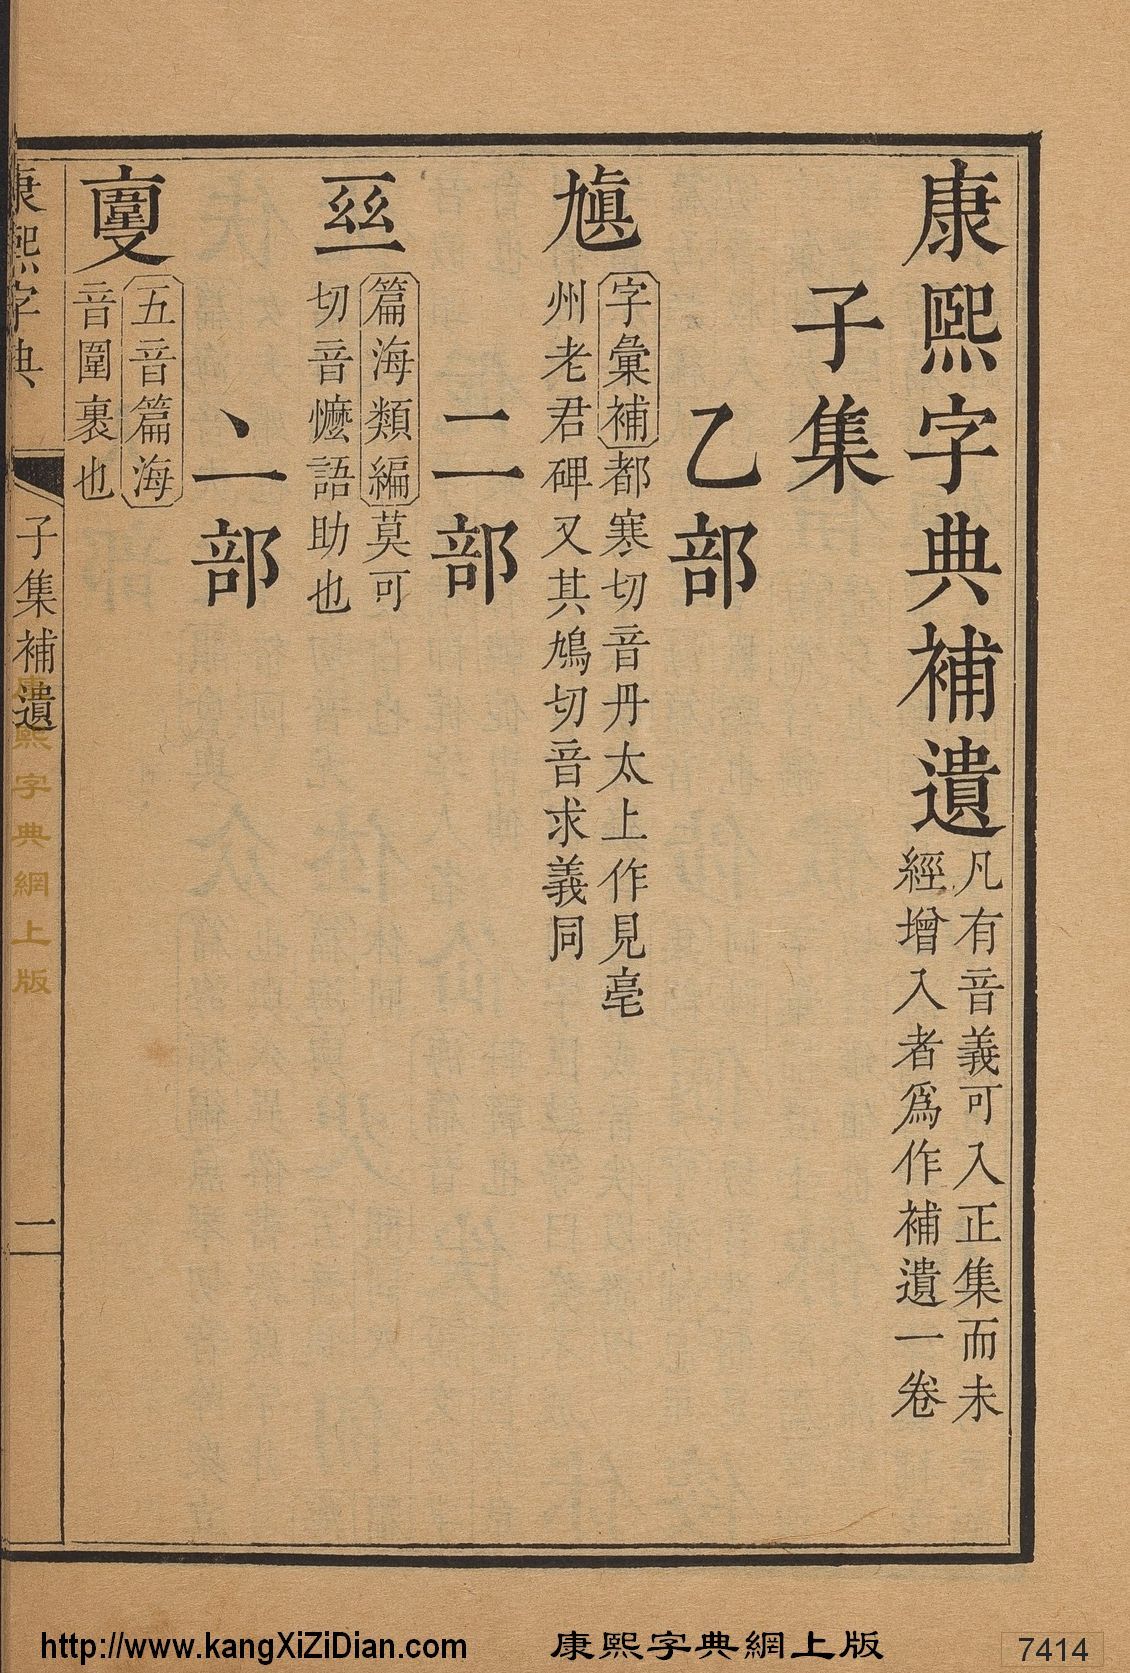 康熙字典補遺
凡有音義可入正集而未
經增入者爲作補遺一卷
子集
乙部
字彙補都寒切音丹太上作見亳
州老君碑又其鳩切音求義同
二部
篇海類編莫可
切音懡語助也
亠部
五音篇海
音圍裹也
康熙字典
子集補遺
一
康熙字典網上版
http://www.kangXiZiDian.com
康熙字典網上版
7414